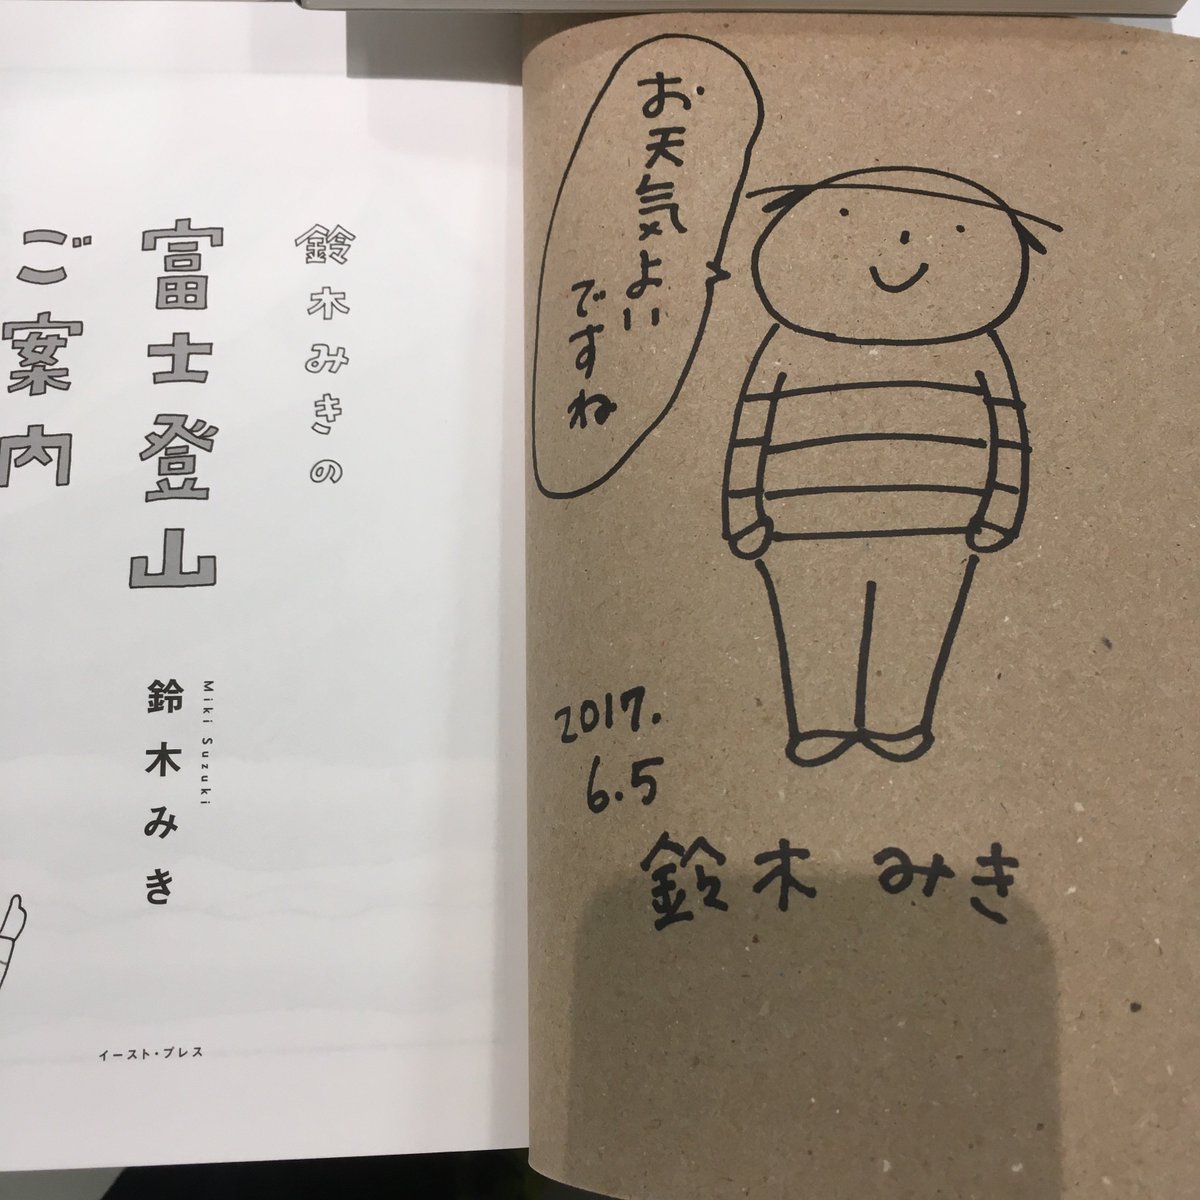 鈴木みきの
富士登山
ご案内
Miki Suzuki
鈴木みき
イースト・プレス
お天気よい
ですね
2017.
6.5
鈴木みき